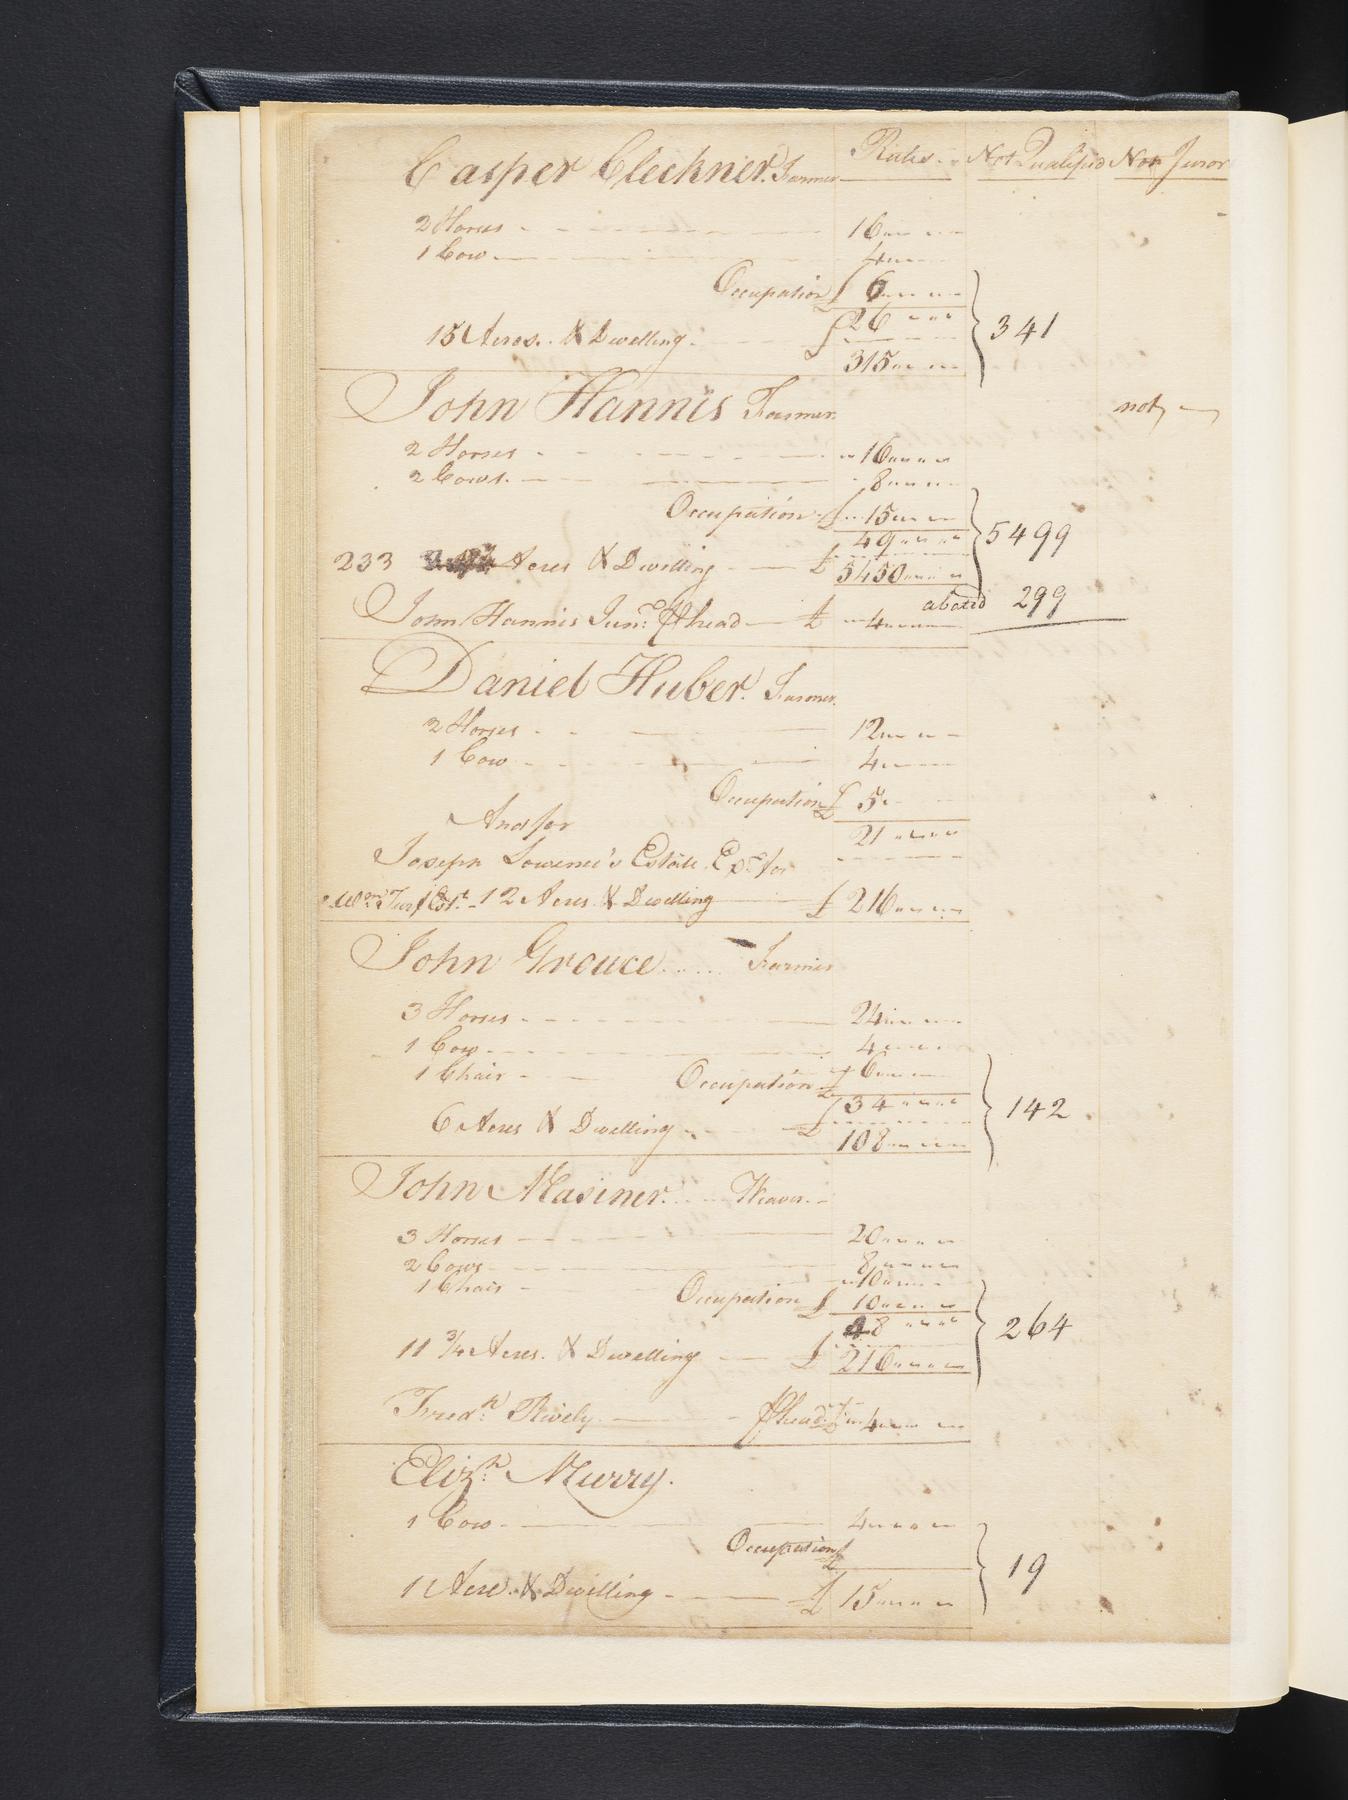 Casper Cleckner. Farmer Rates. Not Qualified Non Juror
2 Horses 16
1 Cow 4
Occupation £ 6
26
15 Acres. & Dwelling £ 315 } 341
John Hannis Farmer. not
2 Horses 16
2 Cows. 8
Occupation £ 15
49
233 Acres & Dwelling £ 5450 } 5499
abated 299
John Hannis Junr. P head £ 4
Daniel Huber. Farmer.
2 Horses 12
1 Cow 4
Occupation £ 5
And for 21
Joseph Estate. for
12 Acres & Dwelling £ 216
John Grouce Farmer
3 Horses 24
1 Cow 4
1 Chair Occupation £ 6
34
6 Acres & Dwelling £ 108 } 142
John Masiner. Weaver.
3 Horses 20
2 Cows 8
1 Chair 10
Occupation £ 10
48
11 3/4 Acres. & Dwelling £ 216 } 264
Fredk. Rively P head £ 4
Elizh. Murry.
1 Cow 4
Occupation £
1 Acre. & Dwelling £ 15 } 19